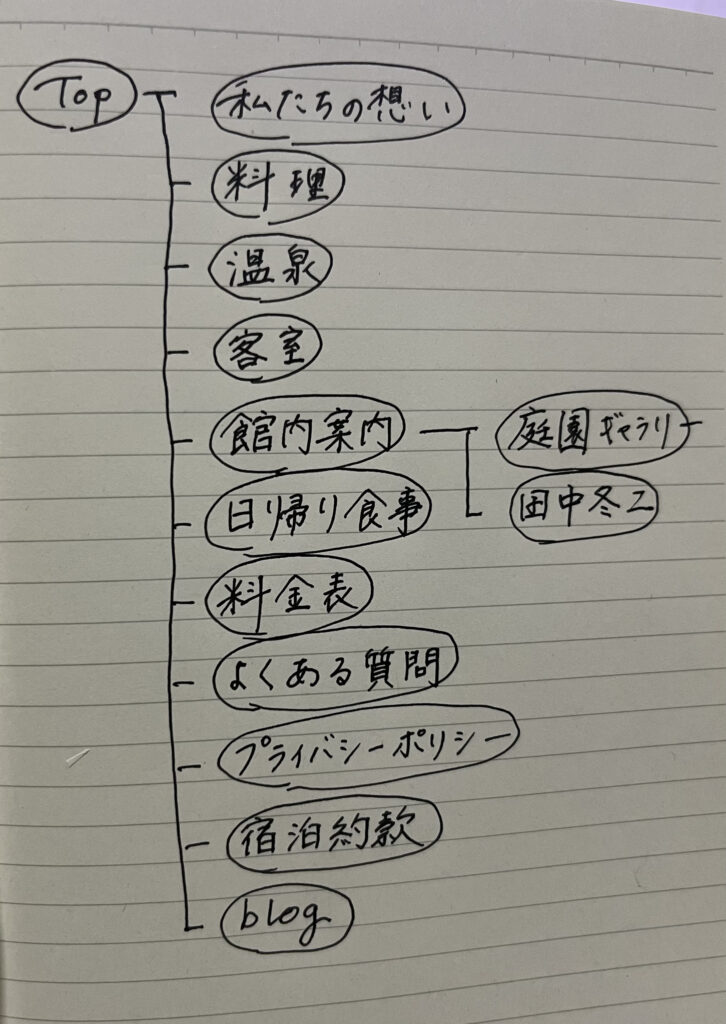 Top
私たちの想い
料理
温泉
客室
館内案内
庭園ギャラリー
日帰り食事
田中冬二
料金表
よくある質問
プライバシーポリシー
宿泊約款
blog